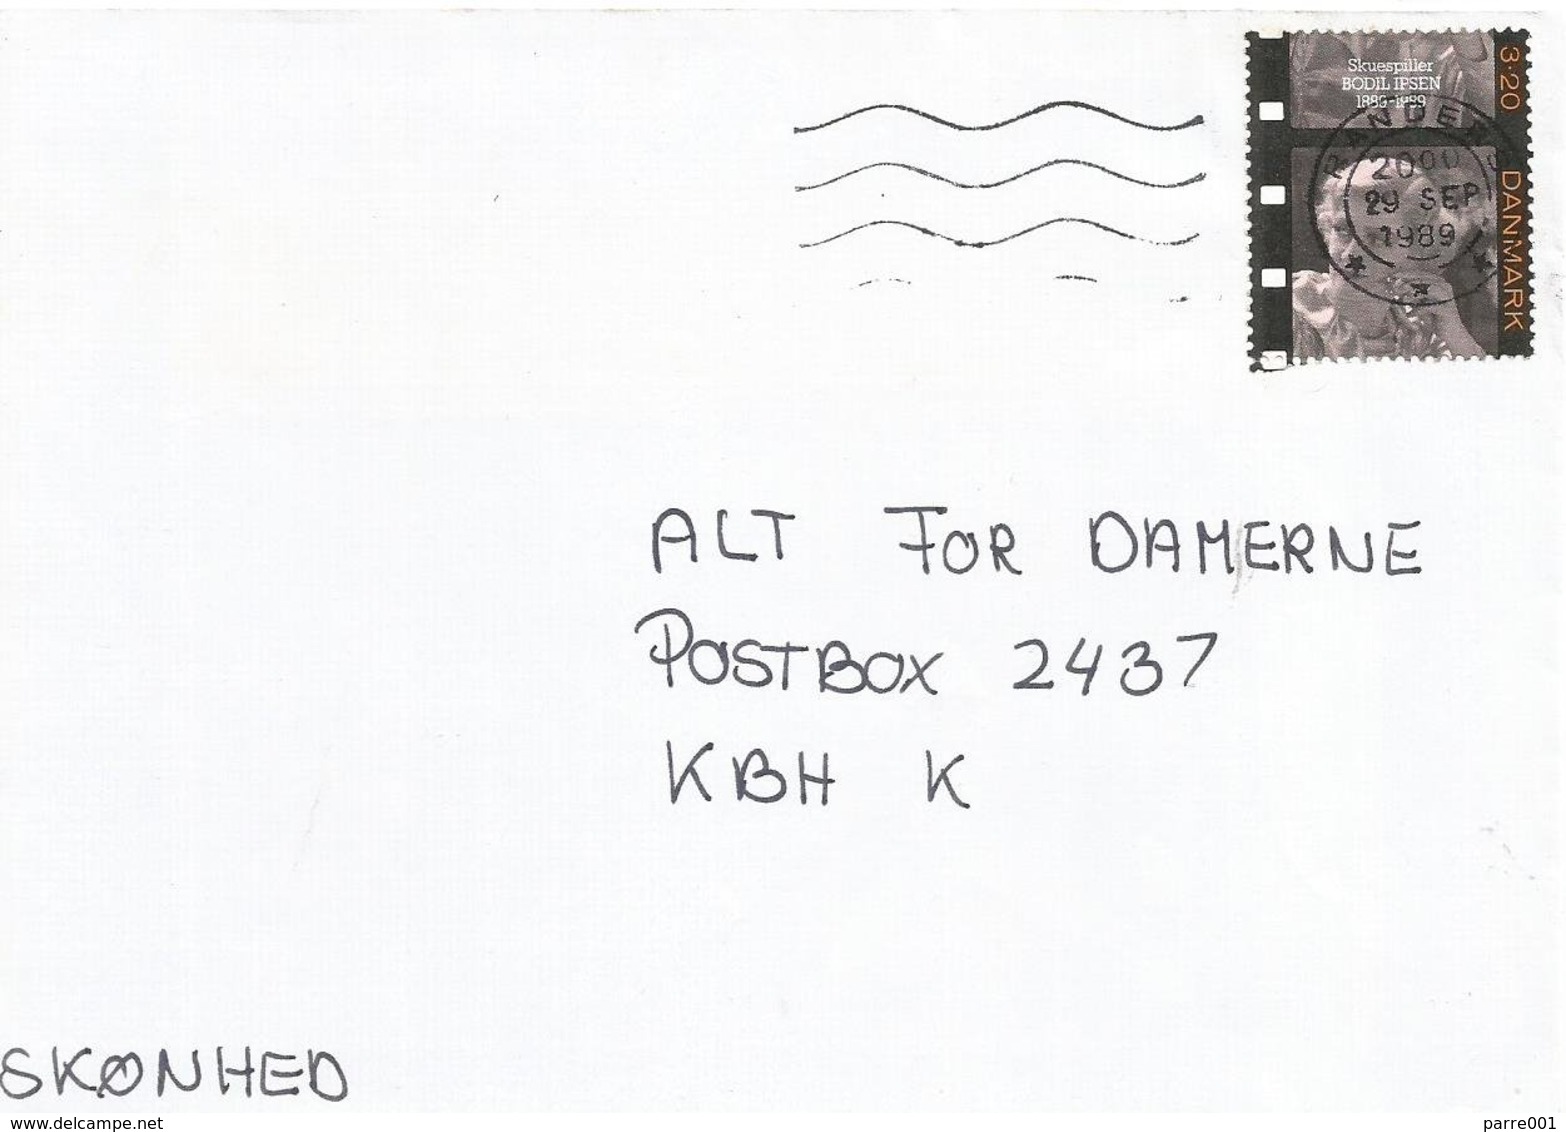 Skuespiller
BODIL IPSEN
1889-1989
3.20
DANMARK
RANDERS
2000
29 SEP
1989
ALT FOR DAMERNE
POSTBOX 2437
KBH K
SKØNHED
www.delcampe.net
parre001